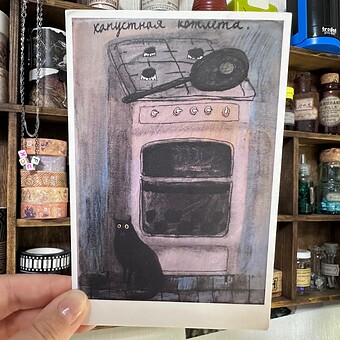 капустная котлета.